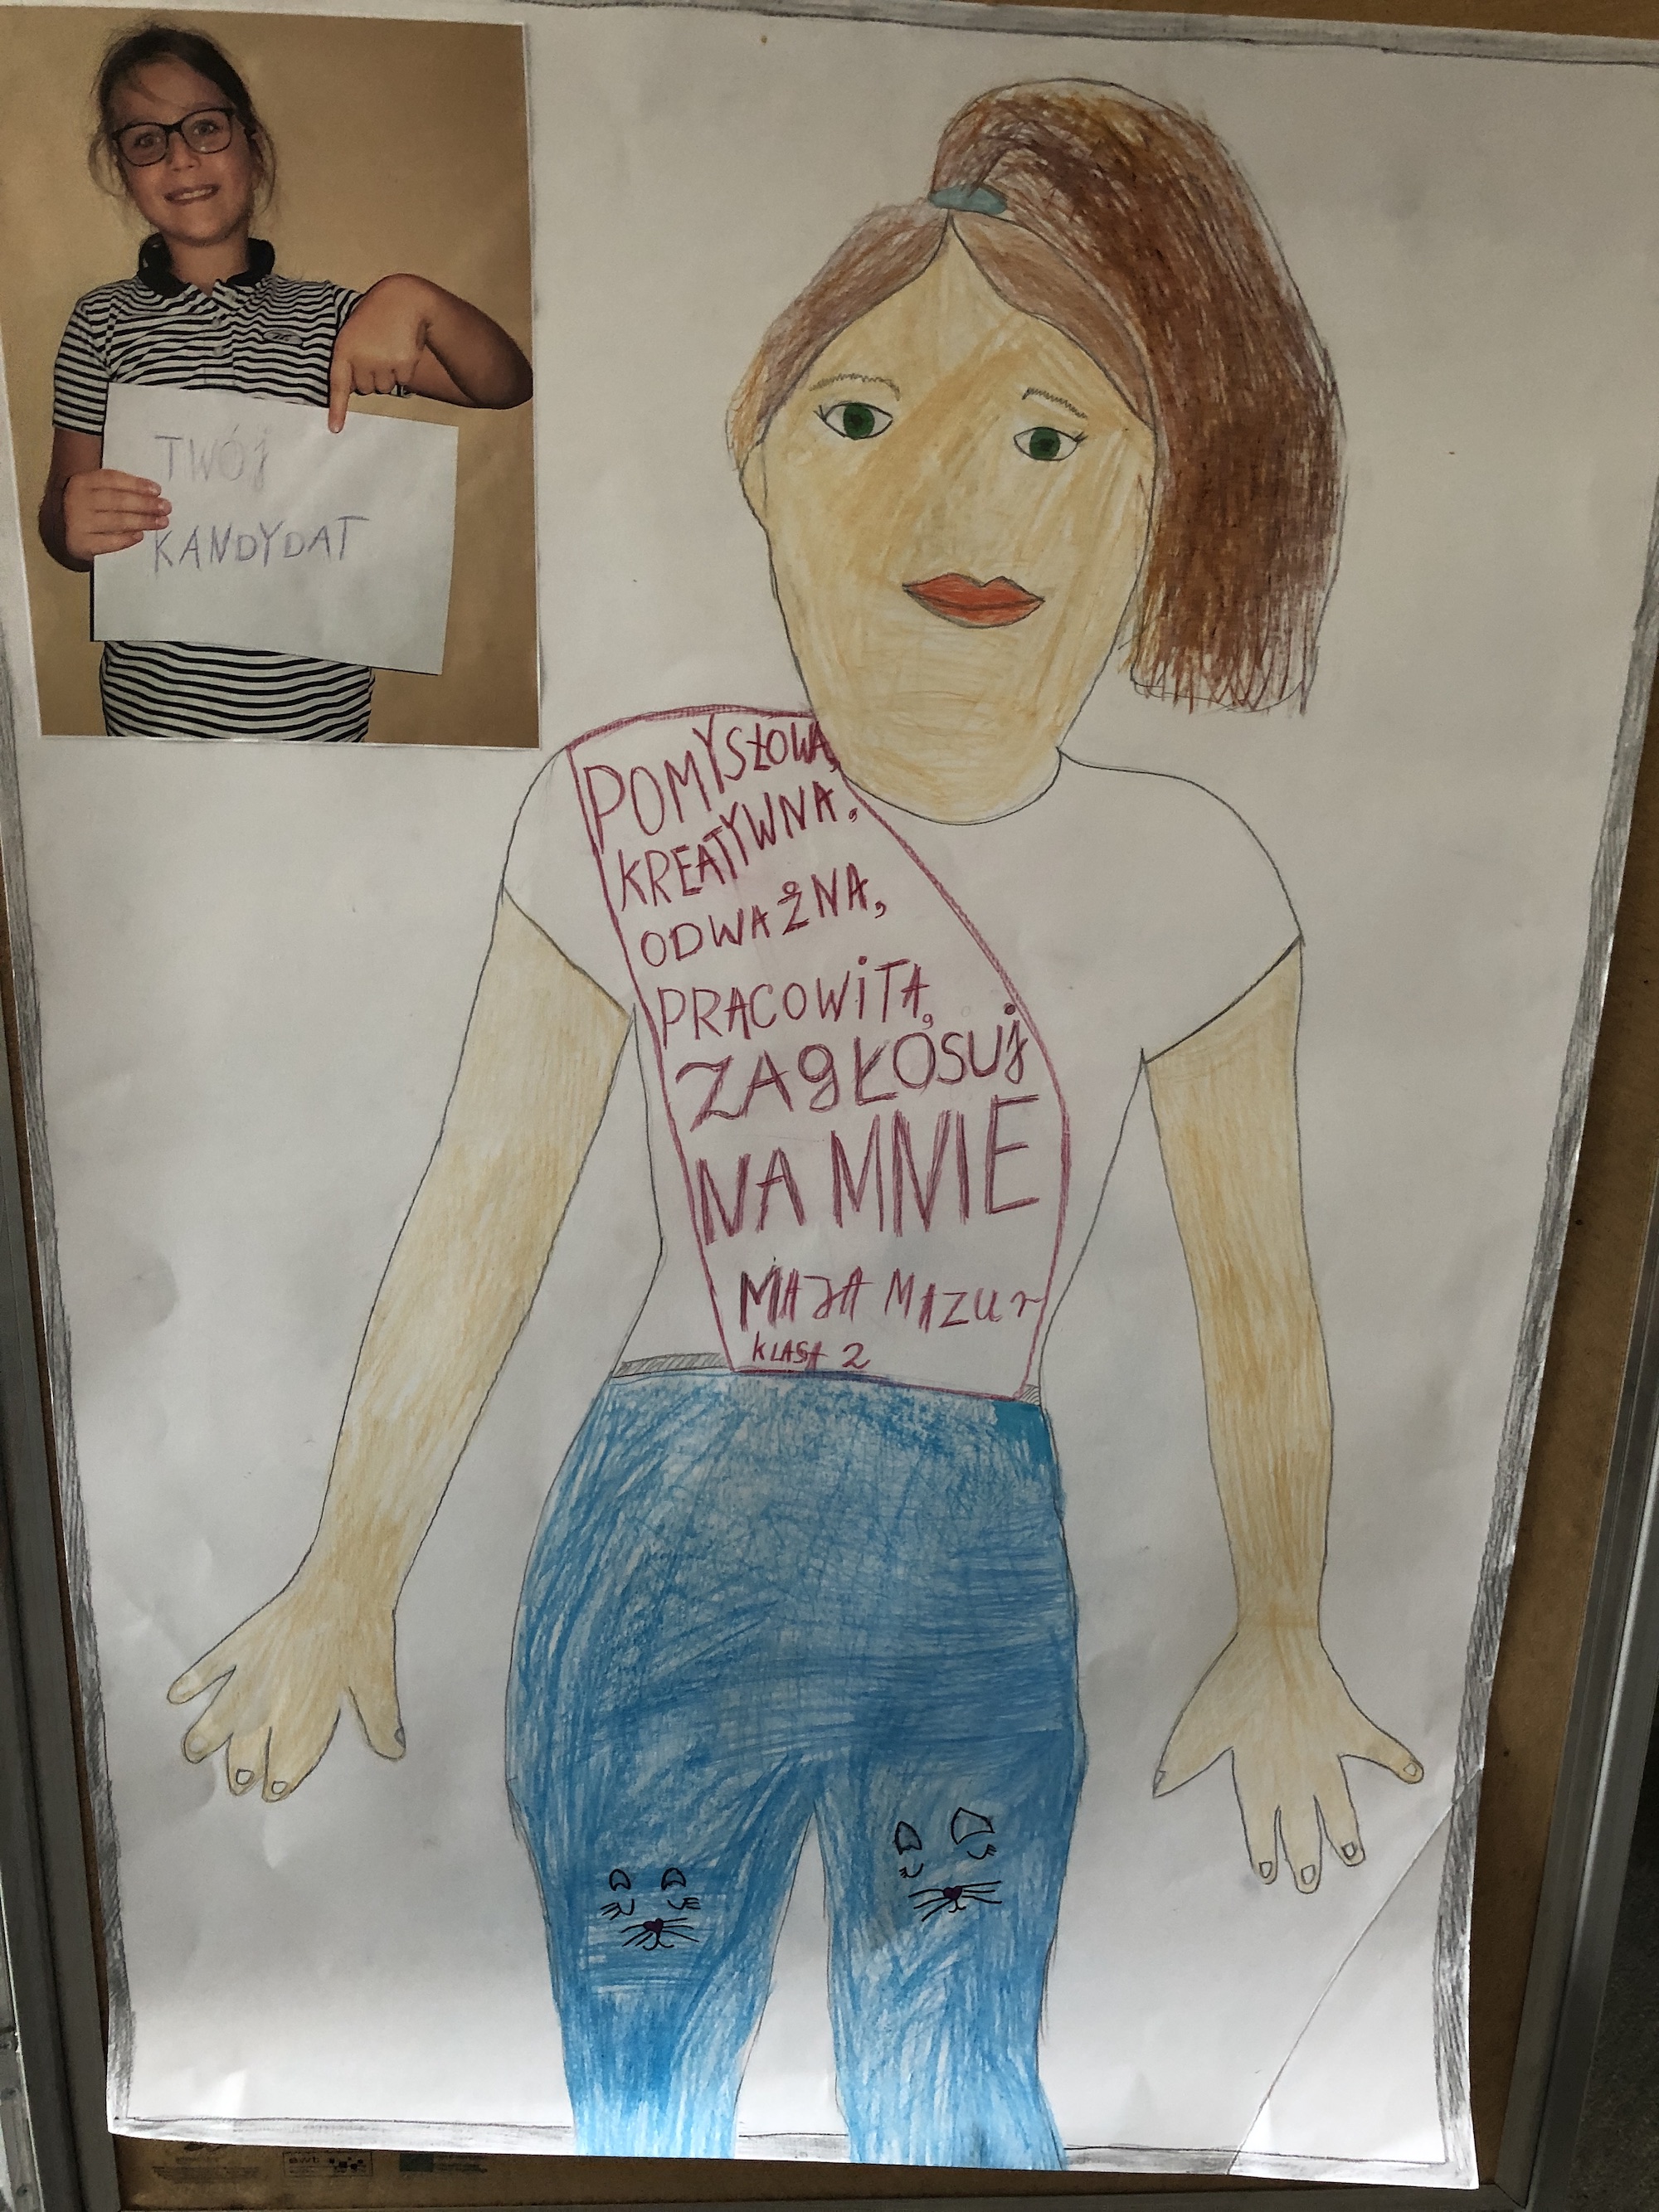 TWÓJ
KANDYDAT
POMYSŁOWA,
KREATYWNA,
ODWAŻNA,
PRACOWITA,
ZAGŁOSUJ
NA MNIE
MAJA MAZUR
KLASA 2